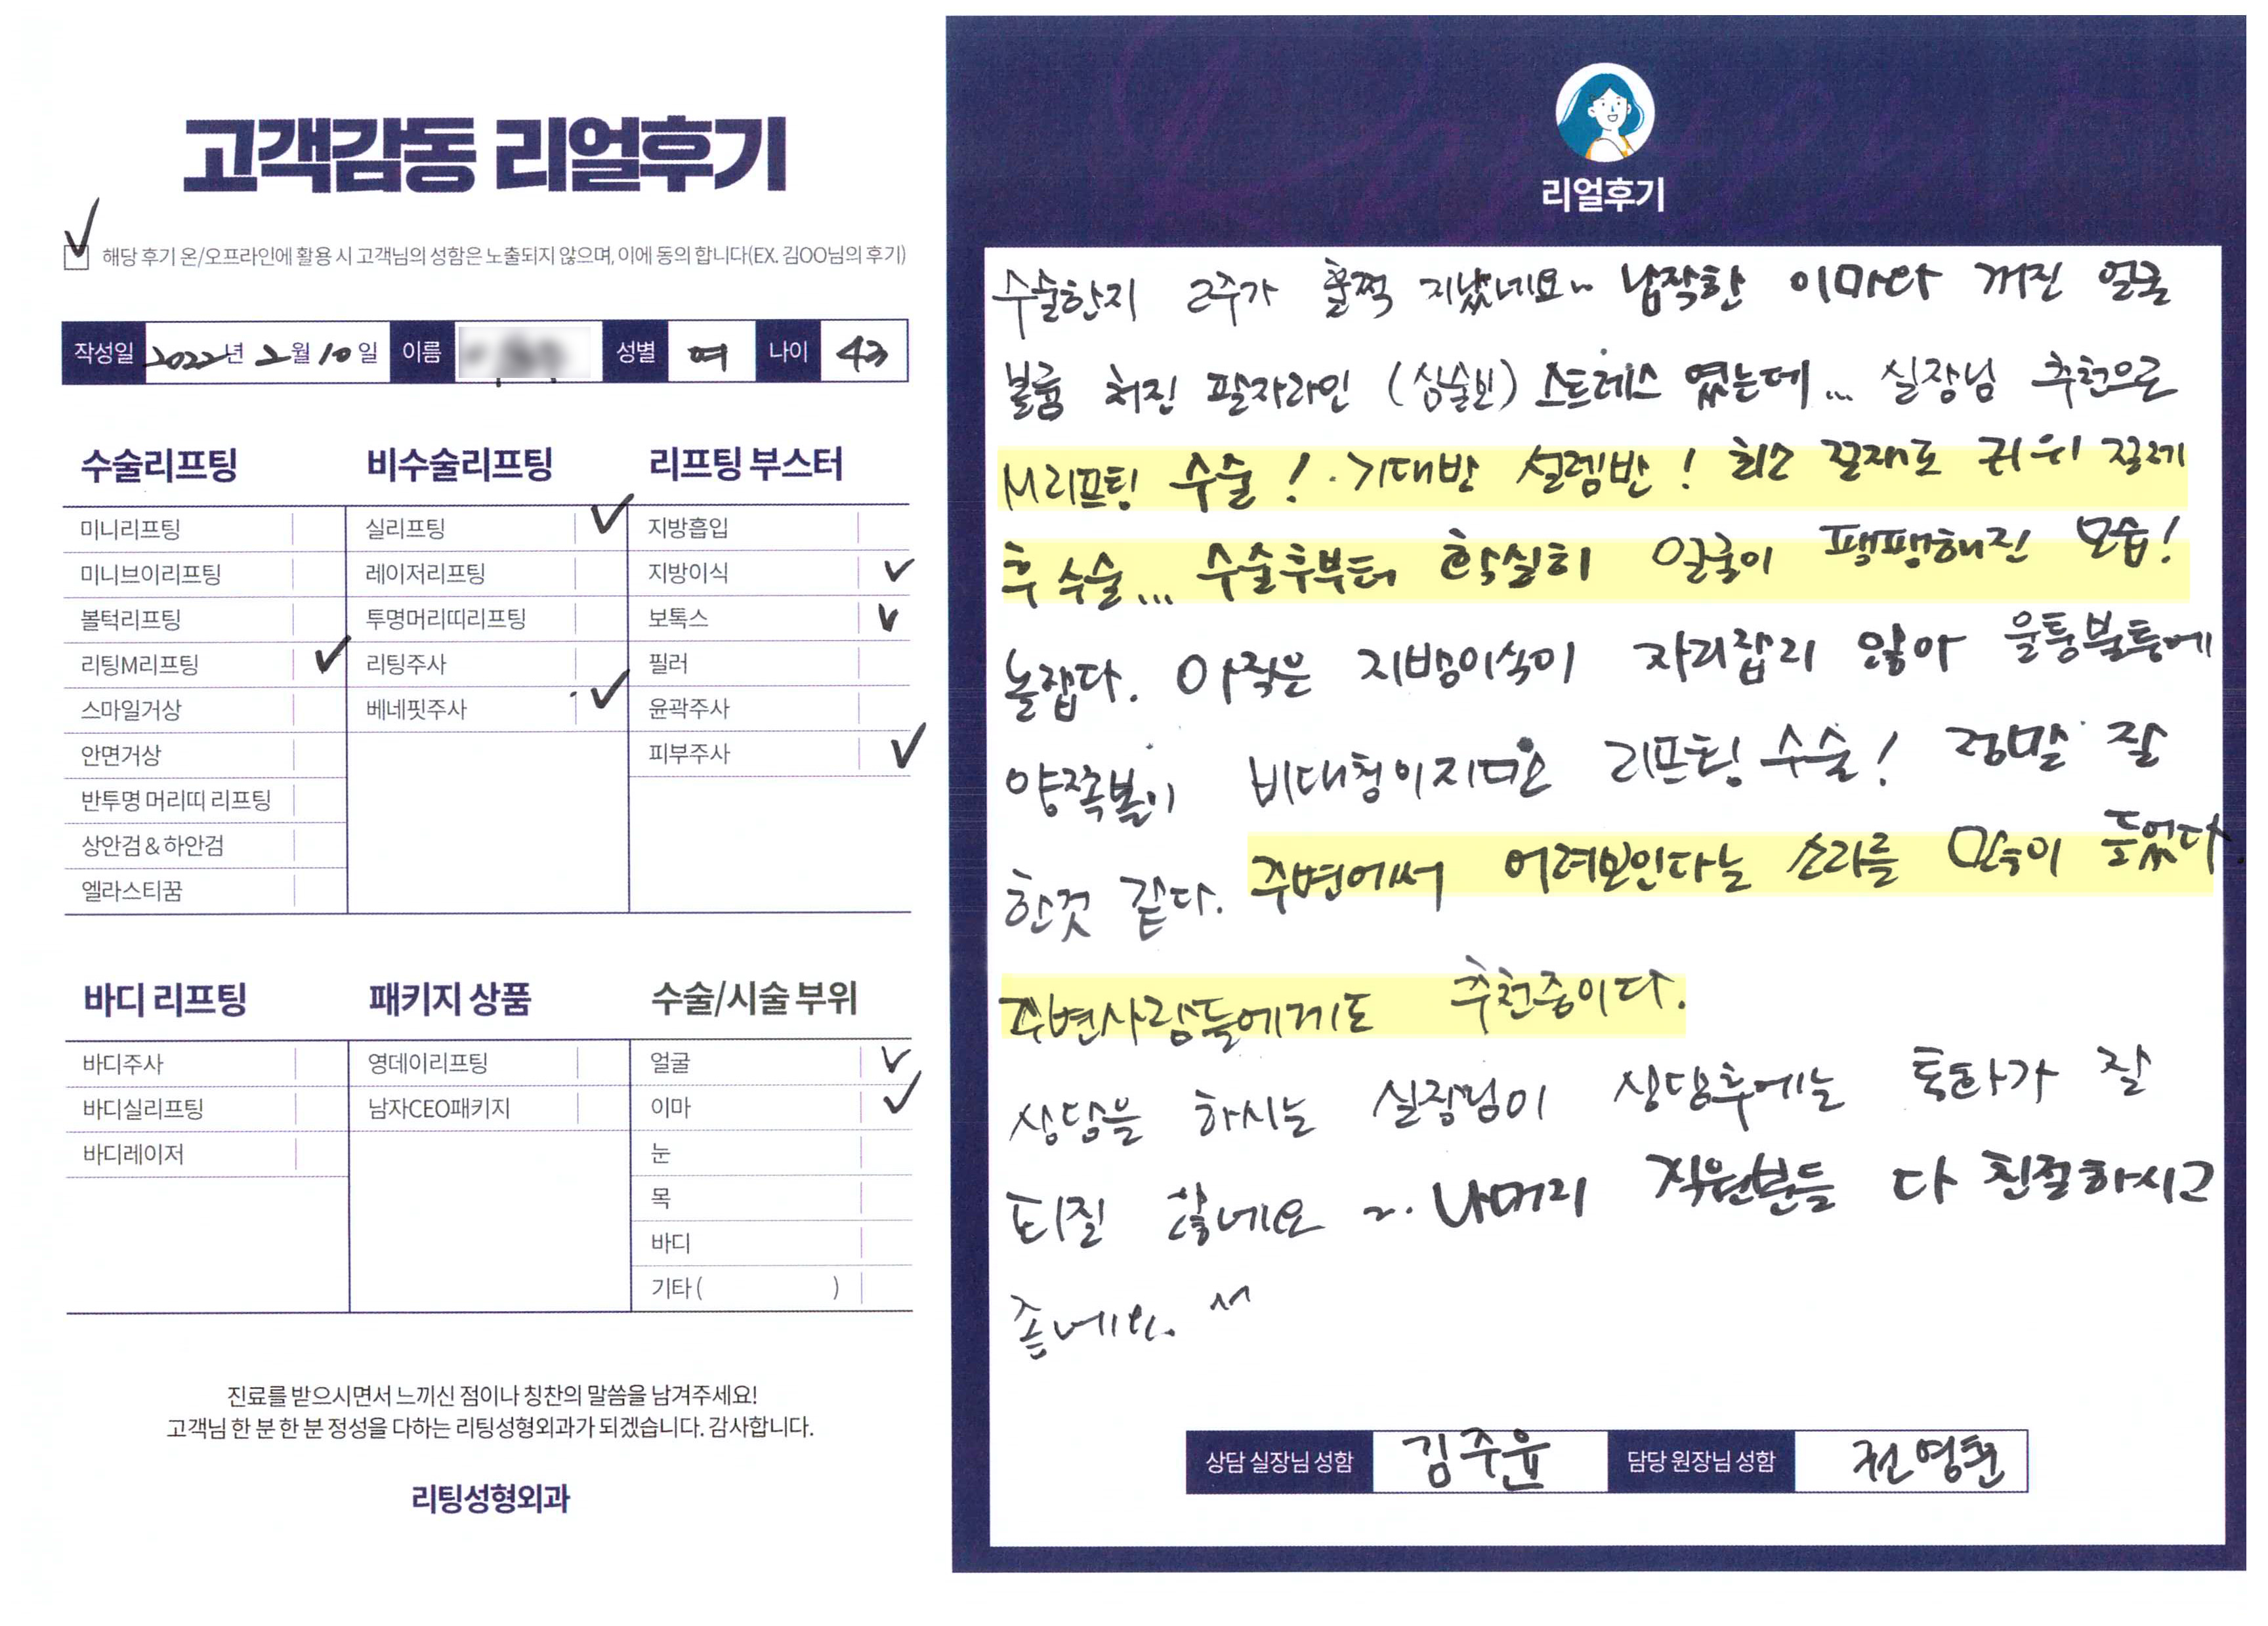 고객감동 리얼후기
해당 후기 온/오프라인에 활용 시 고객님의 성함은 노출되지 않으며, 이에 동의 합니다(EX. 김OO님의 후기)
작성일 2022년 2월 10일 이름 성별 여 나이 43
수술리프팅
미니리프팅
미니브이리프팅
볼턱리프팅
리팅M리프팅
스마일거상
안면거상
반투명 머리띠 리프팅
상안검 & 하안검
엘라스티꿈
비수술리프팅
실리프팅
레이저리프팅
투명머리띠리프팅
리팅주사
베네핏주사
리프팅 부스터
지방흡입
지방이식
보톡스
필러
윤곽주사
피부주사
바디 리프팅
바디주사
바디실리프팅
바디레이저
패키지 상품
영데이리프팅
남자CEO패키지
수술/시술 부위
얼굴
이마
눈
목
바디
기타 ( )
진료를 받으시면서 느끼신 점이나 칭찬의 말씀을 남겨주세요!
고객님 한 분 한 분 정성을 다하는 리팅성형외과가 되겠습니다. 감사합니다.
리팅성형외과
리얼후기
수술한지 2주가 훌쩍 지났네요~ 납작한 이마와 꺼진 얼굴
볼륨 처진 팔자라인 (심술보) 스트레스 였는데... 실장님 추천으로
M리프팅 수술! 기대반 설렘반! 최소 절개로 귀위 절개
후 수술... 수술후부터 확실히 얼굴이 팽팽해진 모습!
놀랍다. 아직은 지방이식이 자리잡지 않아 울퉁불퉁에
양쪽볼이 비대칭이지만요 리프팅 수술! 정말 잘
한것 같다. 주변에서 어려보인다는 소리를 많이 들었다.
주변사람들에게도 추천중이다.
상담을 하시는 실장님이 상담후에는 통화가 잘
되질 않네요 ~. 나머지 직원분들 다 친절하시고
좋네요.
상담 실장님 성함 김주윤 담당 원장님 성함 전영환